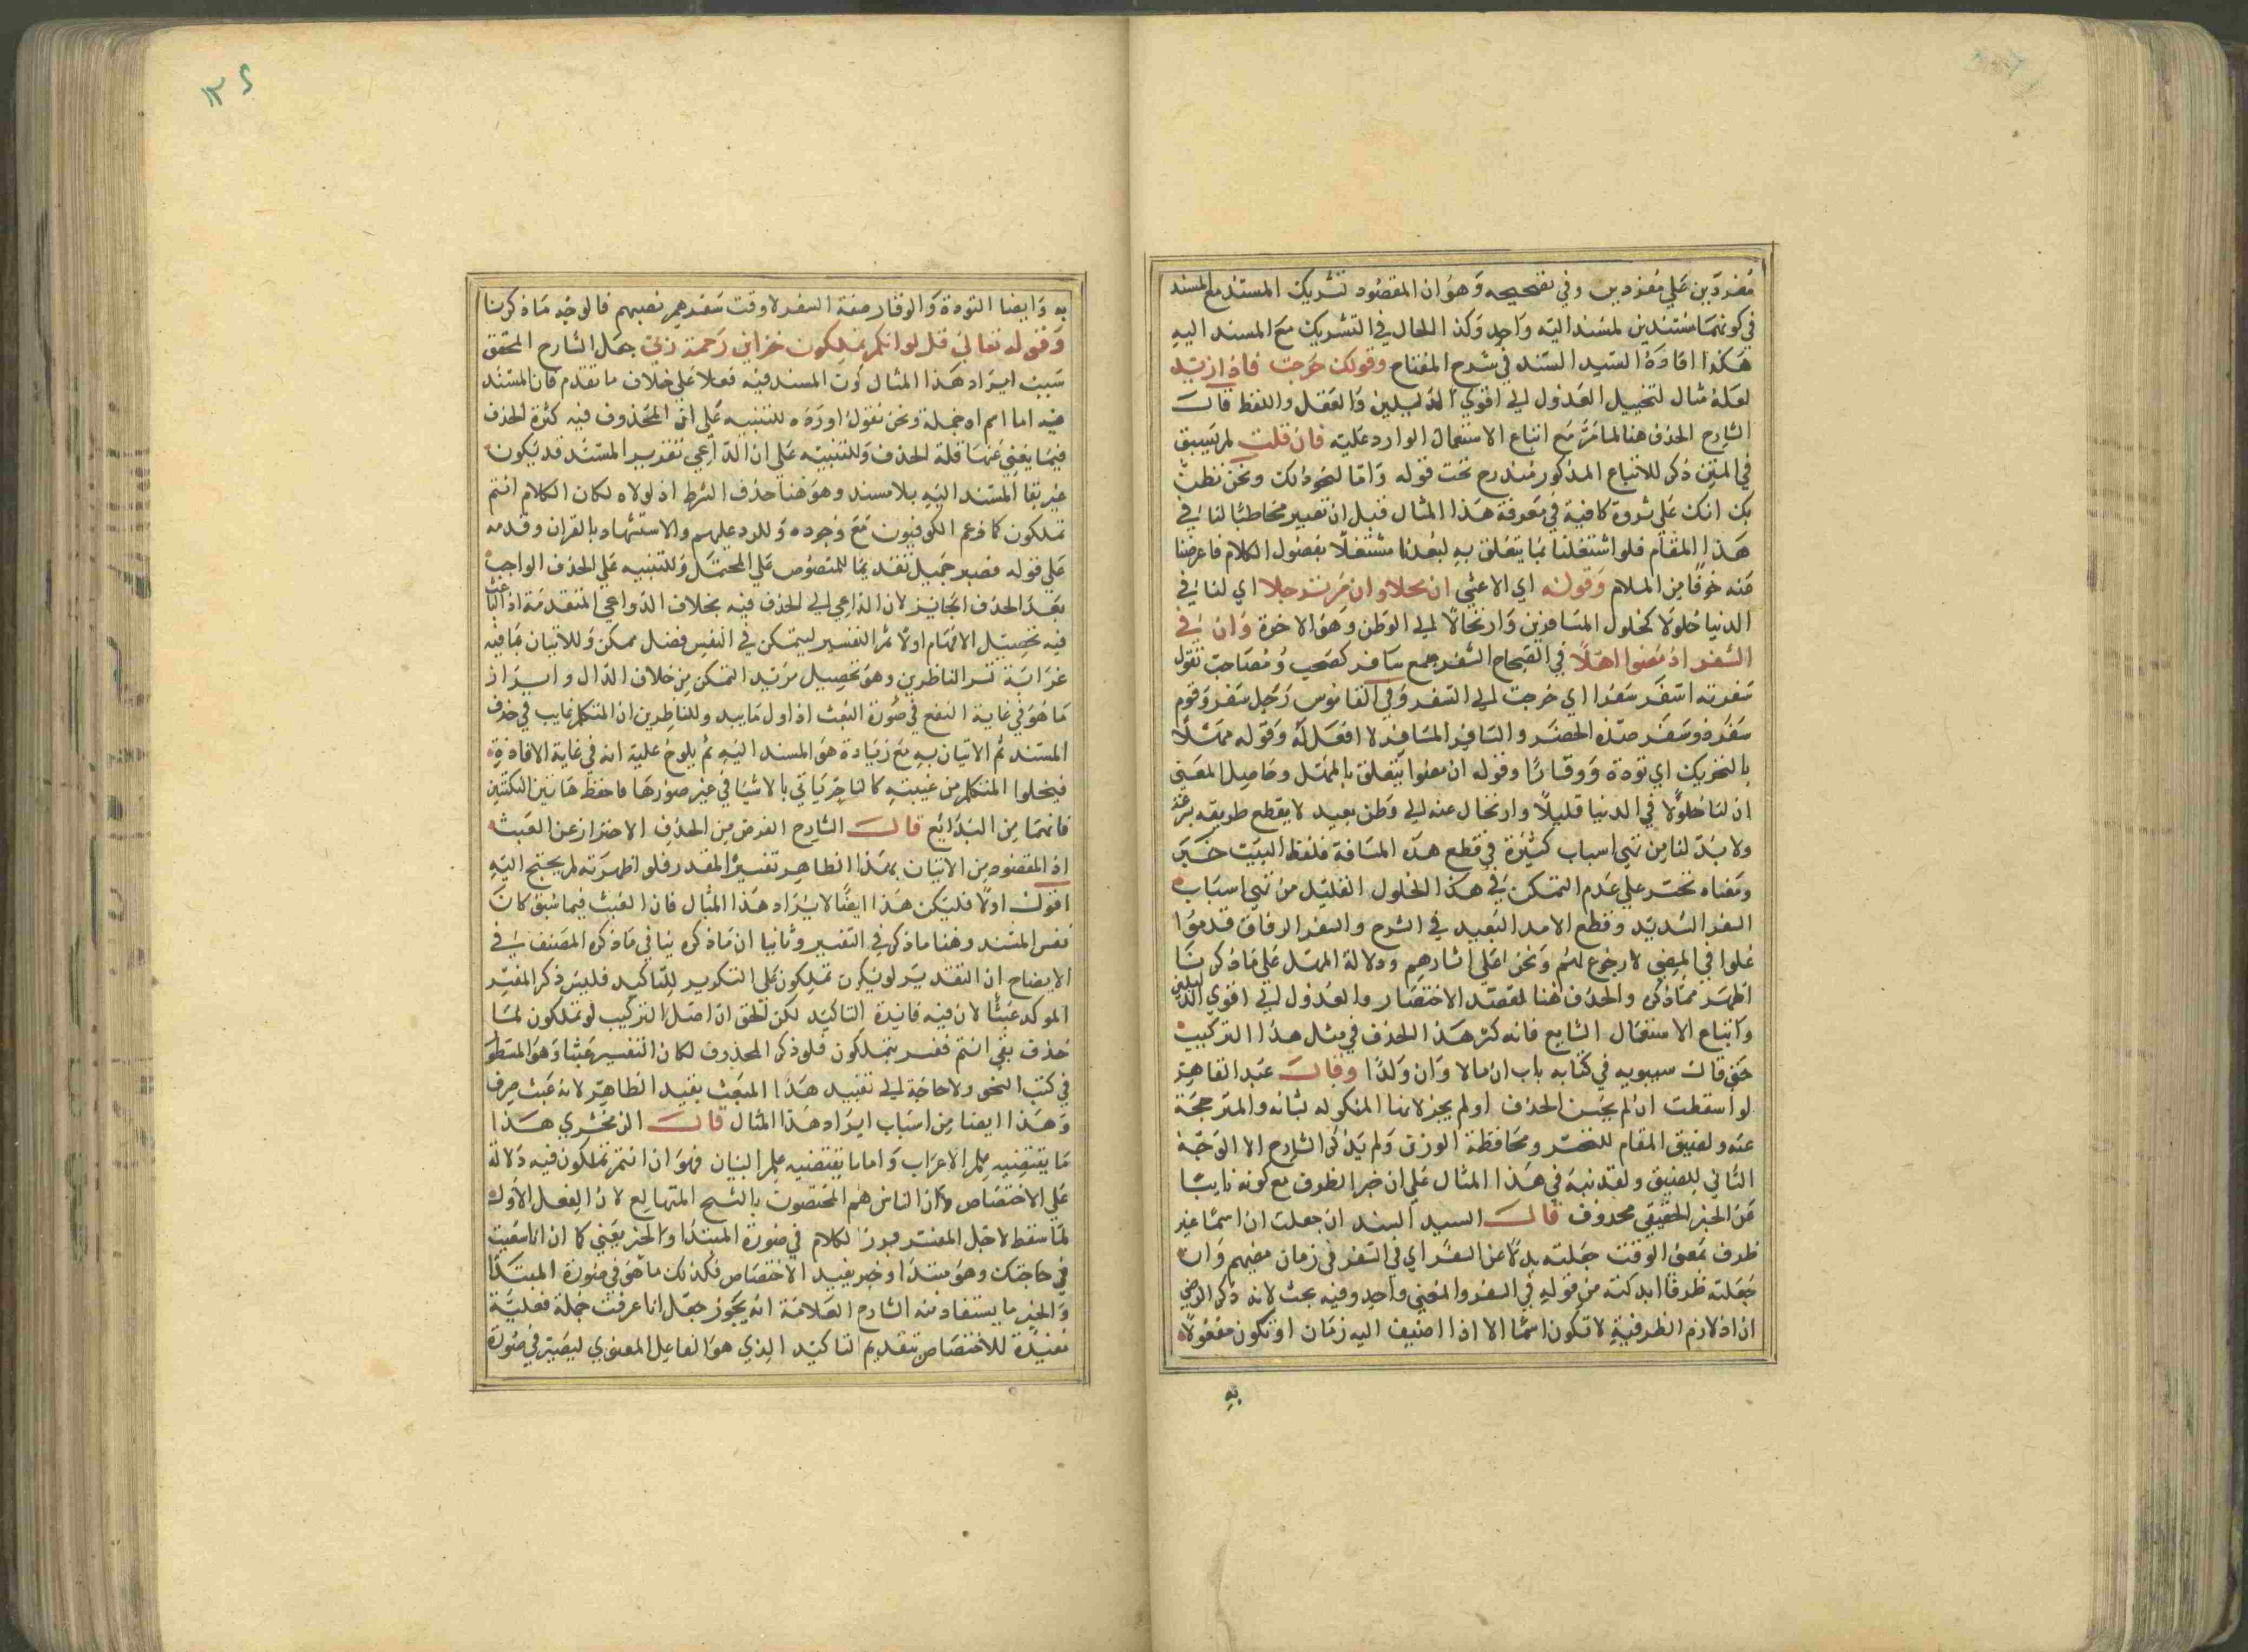 مفردين على مفردين وفي تصحيحه وهو ان المقصود تشريك المسند مع المسند
في كونهما مسندين لمسند اليه واحد وكذا الحال في التشريك مع المسند اليه
هكذا افاده السيد السند في شرح المفتاح وقولك خرجت فاذا زيد
لعله مثال لتخييل العدول الى اقوى الدليلين والعقل واللفظ قال
الشارح الحذف هنا لما مر مع اتباع الاستعمال الوارد عليه فان قلت لم يسبق
في المتن ذكر للاتباع المذكور مندرج تحت قوله واما لنحو ذلك ونحن نظن
بك انك على ثروة كافية في معرفة هذا المثال قبل ان تصير مخاطبا لنا في
هذا المقام فلو اشتغلنا بما يتعلق به لبعدنا مشتغلا بفضول الكلام فاعرضنا
عنه خوفا من الملام وقوله اي الاعشى ان محلا وان مرتحلا اي لنا في
الدنيا حلولا كحلول المسافرين وارتحالا الى الوطن وهو الاخرة وان في
السفر اذ مضوا مهلا في الصحاح السفر جمع سافر كصحب وصاحب تقول
سفرته اسفر سفرا اي خرجت الى السفر وفي القاموس رجل سفر وقوم
سفرة وسفر ضد الحضر والسافر المسافر لا فعل له وقوله مهلا
بالتحريك اي تودة ووقارا وقوله ان مضوا يتعلق بالمهل وحاصل المعنى
ان لنا حلولا في الدنيا قليلا وارتحال عنه الى وطن بعيد لا يقطع طريقه بسرعة
ولا بد لنا من تهي اسباب كثيرة في قطع هذه المسافة فلفظ البيت خبر
ومعناه تحسر على عدم التمكن في هذا الحلول القليل من تهي اسباب
السفر الشديد وقطع الامد البعيد في الشرح والسفر الرفاق قد مضوا
غلوا في المضي لا رجوع لهم ونحن على اثارهم ودلالة المهل على ما ذكرنا
اظهر مما ذكره والحذف هنا لقصد الاختصار والعدول الى اقوى الدليلين
واتباع الاستعمال الشايع فانه كثر هذا الحذف في مثل هذا التركيب
حتى قال سيبويه في كتابه باب ان مالا وان ولدا وقال عبد القاهر
لو اسقطت ان لم يحسن الحذف او لم يجز لانها المتكفلة بشانه والمترجمة
عنه ولضيق المقام للتحسر ومحافظة الوزن ولم يذكر الشارح الا الوجه
الثاني للضيق ولقد نبه في هذا المثال على ان خبر الظرف مع كونه نايبا
عن الخبر الحقيقي محذوف قال السيد السند ان جعلت ان اسما غير
ظرف بمعنى الوقت جعلته بدلا عن السفر اي في السفر في زمان مضيهم وان
جعلته ظرفا ابدلته من قوله في السفر والمعنى واحد وفيه بحث لانه ذكر الرضي
ان اذ لازم الظرفية لا تكون اسما الا اذا اضيف اليه زمان او تكون مفعولا
به
١٣٤
به وايضا التودة والوقار صفة السفر لا وقت سفرهم نصبهم فالوجه ما ذكرنا
وقوله تعالى قل لو انتم تملكون خزاين رحمة ربي جعل الشارح المحقق
سبب ايراد هذا المثال كون المسند فيه فعلا على خلاف ما تقدم فان المسند
فيه اما اسم او جملة ونحن نقول اورده للتنبيه على ان المحذوف فيه كثرة الحذف
فيما يغني عنها قلة الحذف وللتنبيه على ان الداعي تقدير المسند قد يكون
غير بقا المسند اليه بلا مسند وهو هنا حذف الشرط اذ لولاه لكان الكلام انتم
تملكون كما زعم الكوفيون مع وجوده وللرد عليهم والاستشهاد بالقران وقدمه
على قوله فصبر جميل تقديما للمنصوص على المحتمل وللتنبيه على الحذف الواجب
بعد الحذف الجايز لان الداعي الى الحذف فيه بخلاف الدواعي المتقدمة اذ الباعث
فيه تحصيل الابهام اولا ثم التفسير ليتمكن في النفس فضل تمكن وللاتيان بما فيه
غرابة تسر الناظرين وهو تحصيل مزيد التمكن من خلاف الدال وابراز
ما هو في غاية النفع في صورة العبث اذ اول ما يبد وللناظرين ان المتكلم نايب في حذف
المسند ثم الاتيان به مع زيادة هو المسند اليه ثم يلوح عليه انه في غاية الافادة
فيخلوا المتكلم من غيبته كالساحر ياتي بالاشيا في غير صورها فاحفظ هاتين النكتتين
فانهما من البدايع قال الشارح الغرض من الحذف الاحتراز عن العبث
اذ المقصود من الاتيان بهذا الظاهر تفسير المقدر فلو اظهرته لم يحتج اليه
اقول اولا فليكن هذا ايضا لايراد هذا المثال فان العبث فيما سبق كان
نفس المسند وهنا ما ذكر في التفسير وثانيا ان ما ذكره ينافي ما ذكره المصنف في
الايضاح ان التقدير لو تملكون تملكون على التكرير للتاكيد فليس ذكر المفسر
الموكد عبثا لان فيه فائدة التاكيد لكن الحق ان اصل التركيب لو تملكون لما
حذف بقي انتم ففسر بتملكون فلو ذكر المحذوف لكان التفسير عبثا وهو المسطور
في كتب النحو ولا حاجة الى تقييد هذا العبث بقيد الظاهر لانه عبث صرف
وهذا ايضا من اسباب ايراد هذا المثال قال الزمخشري هذا
ما يقتضيه علم الاعراب واما ما يقتضيه علم البيان فهو ان انتم تملكون فيه دلالة
على الاختصاص وان الناس هم المختصون بالشح المتبالغ لان الفعل الاول
لما سقط لاجل المفسر برز الكلام في صورة المبتدا والخبر يعني كما ان انا سعيت
في حاجتك وهو مبتدا وخبر يفيد الاختصاص فكذلك ما هو في صورة المبتدا
والخبر ما يستفاد منه الشارح العلامة انه يجوز جعل انا عرفت جملة فعلية
مفيدة للاختصاص بتقديم التاكيد الذي هو الفاعل المعنوي ليصير في صورة